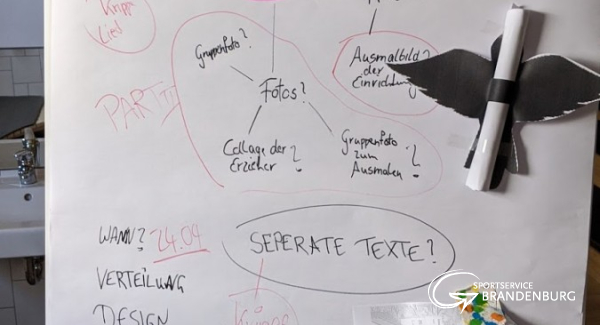 Krippe
Lied
Gruppenfoto?
Ausmalbild?
der
Einrichtung
PART III
Fotos?
Collage der
Erzieher?
Gruppenfoto
zum
Ausmalen?
WANN? 24.04
SEPERATE TEXTE?
VERTEILUNG
DESIGN
SPORTSERVICE
BRANDENBURG